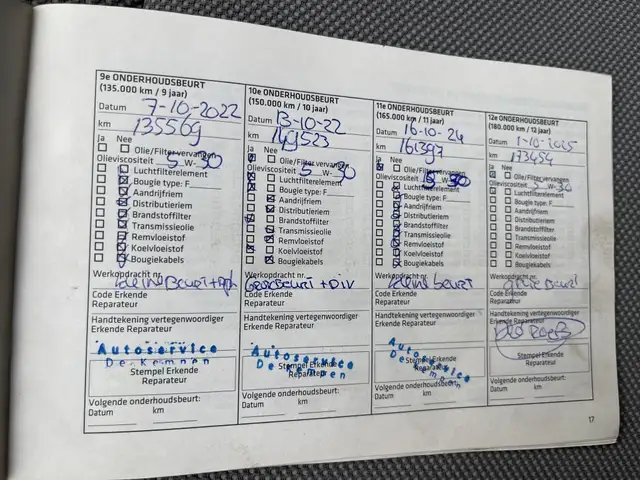 9e ONDERHOUDSBEURT
(135.000 km / 9 jaar)
Datum 7-10-2022
km 135569
Ja Nee
Olie/Filter vervangen
Olieviscositeit 5 W- 30
Luchtfilterelement
Bougie type: F
Aandrijfriem
Distributieriem
Brandstoffilter
Transmissieolie
Remvloeistof
Koelvloeistof
Bougiekabels
Werkopdracht nr.
kleine Beurt + Apk
Code Erkende
Reparateur
Handtekening vertegenwoordiger
Erkende Reparateur
Autoservice
De Kempen
Stempel Erkende
Reparateur
Volgende onderhoudsbeurt:
Datum km
10e ONDERHOUDSBEURT
(150.000 km / 10 jaar)
Datum 13-10-22
km 149523
Ja Nee
Olie/Filter vervangen
Olieviscositeit 5 W- 30
Luchtfilterelement
Bougie type: F
Aandrijfriem
Distributieriem
Brandstoffilter
Transmissieolie
Remvloeistof
Koelvloeistof
Bougiekabels
Werkopdracht nr.
Grote Beurt + Div
Code Erkende
Reparateur
Handtekening vertegenwoordiger
Erkende Reparateur
Autoservice
De Kempen
Stempel Erkende
Reparateur
Volgende onderhoudsbeurt:
Datum km
11e ONDERHOUDSBEURT
(165.000 km / 11 jaar)
Datum 16-10-24
km 161397
Ja Nee
Olie/Filter vervangen
Olieviscositeit 5 W- 30
Luchtfilterelement
Bougie type: F
Aandrijfriem
Distributieriem
Brandstoffilter
Transmissieolie
Remvloeistof
Koelvloeistof
Bougiekabels
Werkopdracht nr.
kleine beurt
Code Erkende
Reparateur
Handtekening vertegenwoordiger
Erkende Reparateur
Autoservice
De Kempen
Stempel Erkende
Reparateur
Volgende onderhoudsbeurt:
Datum km
12e ONDERHOUDSBEURT
(180.000 km / 12 jaar)
Datum 1-10-2025
km 173454
Ja Nee
Olie/Filter vervangen
Olieviscositeit 5 W- 30
Luchtfilterelement
Bougie type: F
Aandrijfriem
Distributieriem
Brandstoffilter
Transmissieolie
Remvloeistof
Koelvloeistof
Bougiekabels
Werkopdracht nr.
grote Beurt
Code Erkende
Reparateur
Handtekening vertegenwoordiger
Erkende Reparateur
Stempel Erkende
Reparateur
Volgende onderhoudsbeurt:
Datum km
17